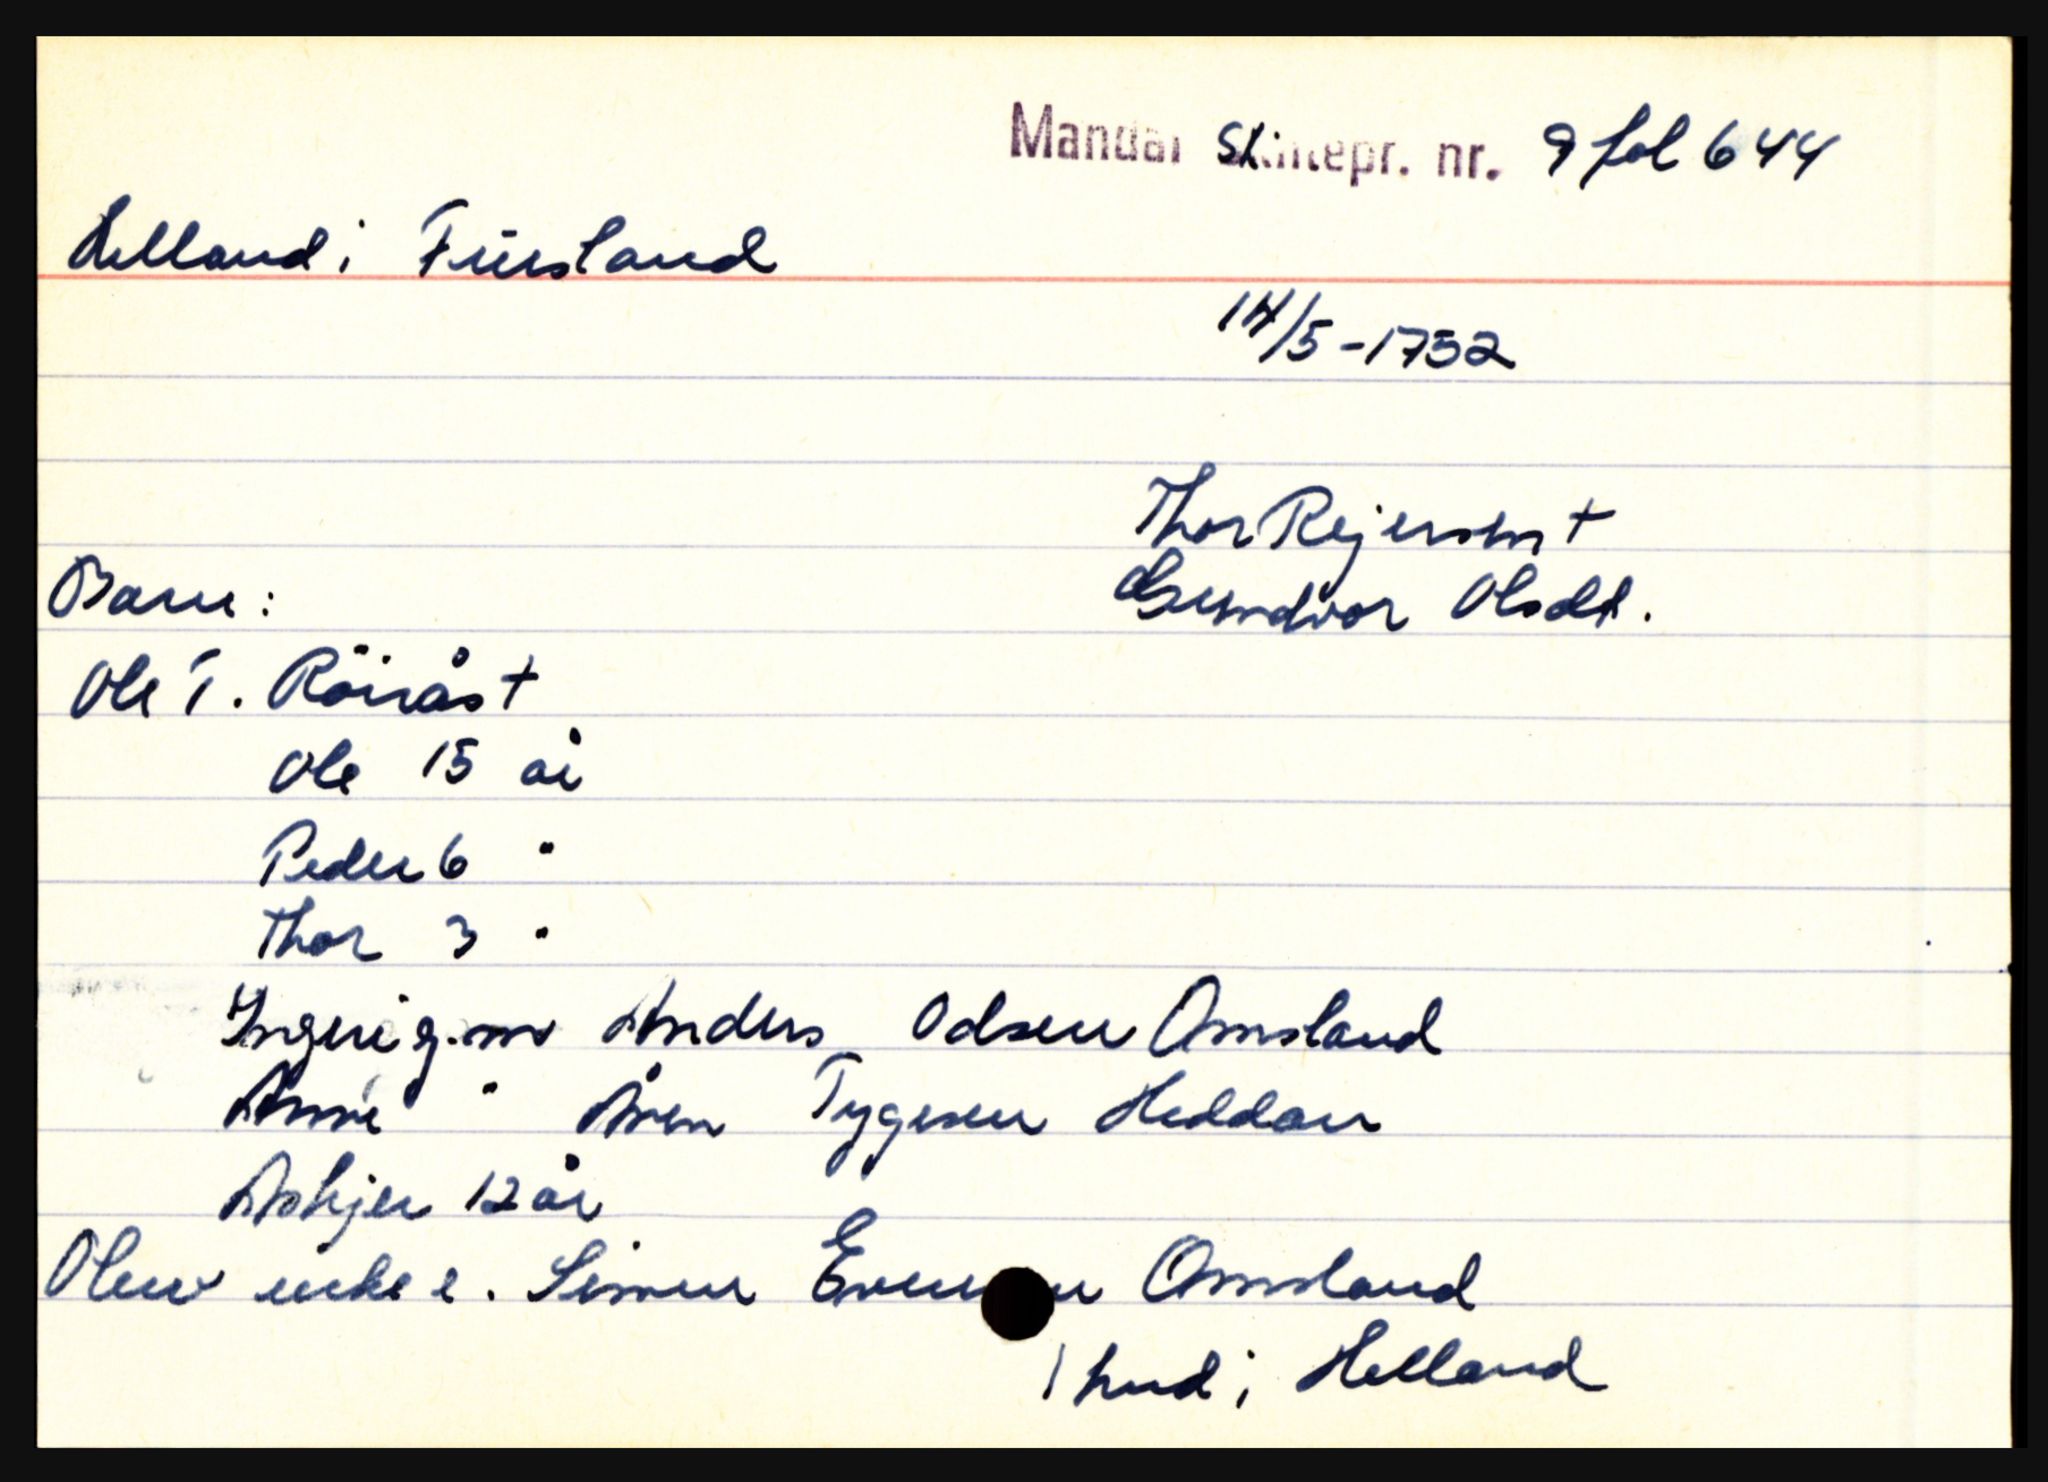 Mandal Skiftepr. nr. 9 fol 644
Helland i Fuusland
14/5-1752
Thor Rejersen +
Gundvor Olsdt.
Barn:
Ole T. Röinås +
Ole 15 år
Peder 6 "
Thor 3 "
Ingeri g.m. Anders Odsen Omsland
Anne " Aven Tygesen Heddan
Askjer 12 år
Olew enke e. Simen Evensen Omsland
1 hud i Helland